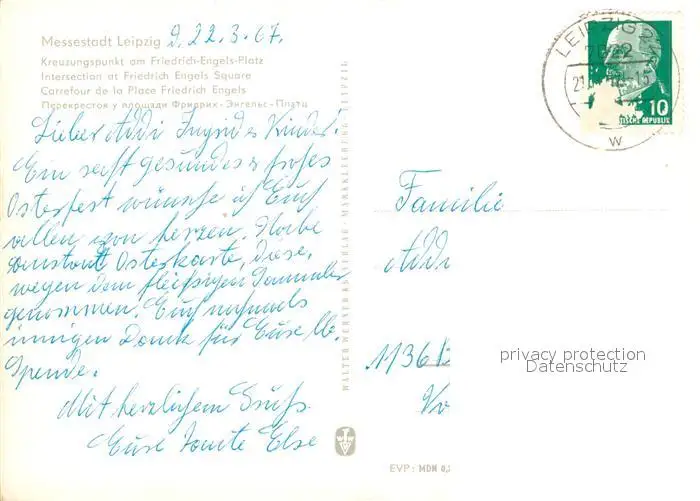 Messestadt Leipzig d. 22.3.67.
Kreuzungspunkt am Friedrich-Engels-Platz
Intersection at Friedrich Engels Square
Carrefour de la Place Friedrich Engels
Перекресток у площади Фридрих-Энгельс-Платц
Lieber Addi Ingrid & Kinder!
Ein recht gesundes & frohes
Osterfest wünsche ich Euch
allen von herzen. Habe
anstatt Osterkarte, diese,
wegen dem fleißigen Sammler
genommen. Euch nochmals
innigen Dank für Eure lb.
Spende.
Mit herzlichem Gruß
Eure Tante Else
WALTER WERNER VERLAG · MARKKLEEBERG · LEIPZIG
LEIPZIG
7022
10
TISCHE REPUBLIK
W
Familie
Addi
1136
EVP: MDN 0,
privacy protection
Datenschutz